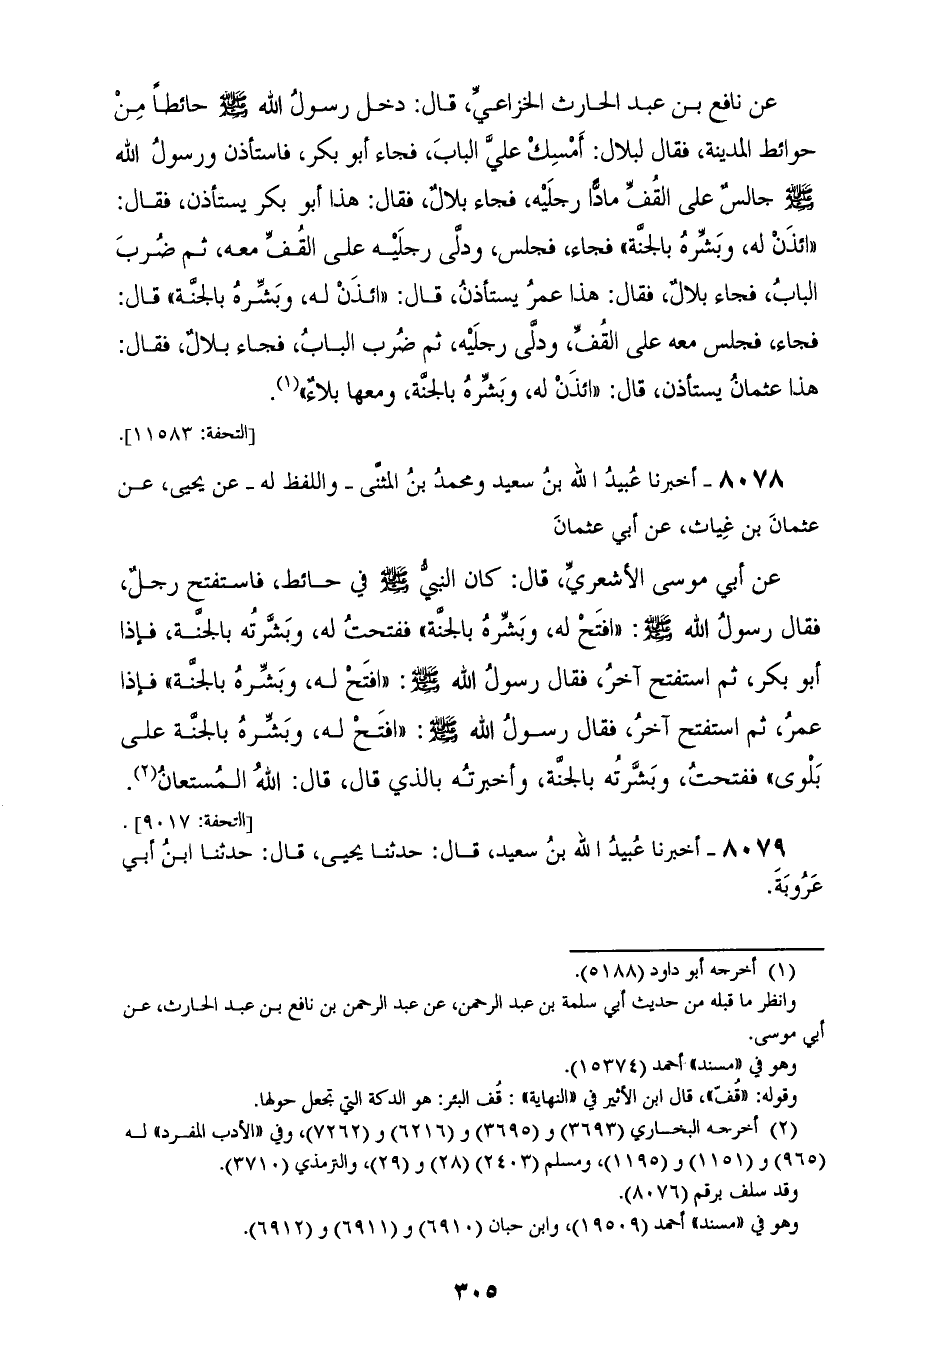 عن نافع بن عبد الحارث الخزاعيِّ، قال: دخل رسولُ الله ﷺ حائطاً مِنْ
حوائط المدينة، فقال لبلال: أَمْسِكْ عليَّ البابَ، فجاء أبو بكر، فاستأذن ورسولُ الله
ﷺ جالسٌ على القُفِّ مادًّا رجلَيْه، فجاء بلالٌ، فقال: هذا أبو بكر يستأذن، فقال:
«ائذَنْ له، وبَشِّرهُ بالجنَّة» فجاء، فجلس، ودلَّى رجلَيْه على القُفِّ معه، ثم ضُرِبَ
البابُ، فجاء بلالٌ، فقال: هذا عمرُ يستأذنُ، قال: «ائذَنْ له، وبَشِّرهُ بالجنَّة» قال:
فجاء، فجلس معه على القُفِّ، ودلَّى رجلَيْه، ثم ضُرب البابُ، فجاء بلالٌ، فقال:
هذا عثمانُ يستأذن، قال: «ائذَنْ له، وبَشِّرهُ بالجنَّة، ومعها بلاءٌ»(١).
[التحفة: ١١٥٨٣].
٨٠٧٨ - أخبرنا عُبيدُ الله بنُ سعيد ومحمدُ بنُ المثنَّى - واللفظ له - عن يحيى، عن
عثمانَ بن غِياث، عن أبي عثمانَ
عن أبي موسى الأشعريِّ، قال: كان النبيُّ ﷺ في حائط، فاستفتح رجلٌ،
فقال رسولُ الله ﷺ: «افتَحْ له، وبَشِّرهُ بالجنَّة» ففتحتُ له، وبَشَّرتُه بالجنَّة، فإذا
أبو بكر، ثم استفتح آخرُ، فقال رسولُ الله ﷺ: «افتَحْ له، وبَشِّرهُ بالجنَّة» فإذا
عمرُ، ثم استفتح آخرُ، فقال رسولُ الله ﷺ: «افتَحْ له، وبَشِّرهُ بالجنَّة على
بَلْوى» ففتحتُ، وبَشَّرتُه بالجنَّة، وأخبرتُه بالذي قال، قال: اللهُ المُستعانُ(٢).
[التحفة: ٩٠١٧].
٨٠٧٩ - أخبرنا عُبيدُ الله بنُ سعيد، قال: حدثنا يحيى، قال: حدثنا ابنُ أبي
عَرُوبَةَ.
(١) أخرجه أبو داود (٥١٨٨).
وانظر ما قبله من حديث أبي سلمة بن عبد الرحمن، عن عبد الرحمن بن نافع بن عبد الحارث، عن
أبي موسى.
وهو في «مسند» أحمد (١٥٣٧٤).
وقوله: «قُفّ»، قال ابن الأثير في «النهاية»: قُف البئر: هو الدكة التي تجعل حولها.
(٢) أخرجه البخاري (٣٦٩٣) و (٣٦٩٥) و (٦٢١٦) و (٧٢٦٢)، وفي «الأدب المفرد» له
(٩٦٥) و (١١٥١) و (١١٩٥)، ومسلم (٢٤٠٣) (٢٨) و (٢٩)، والترمذي (٣٧١٠).
وقد سلف برقم (٨٠٧٦).
وهو في «مسند» أحمد (١٩٥٠٩)، وابن حبان (٦٩١٠) و (٦٩١١) و (٦٩١٢).
٣٠٥